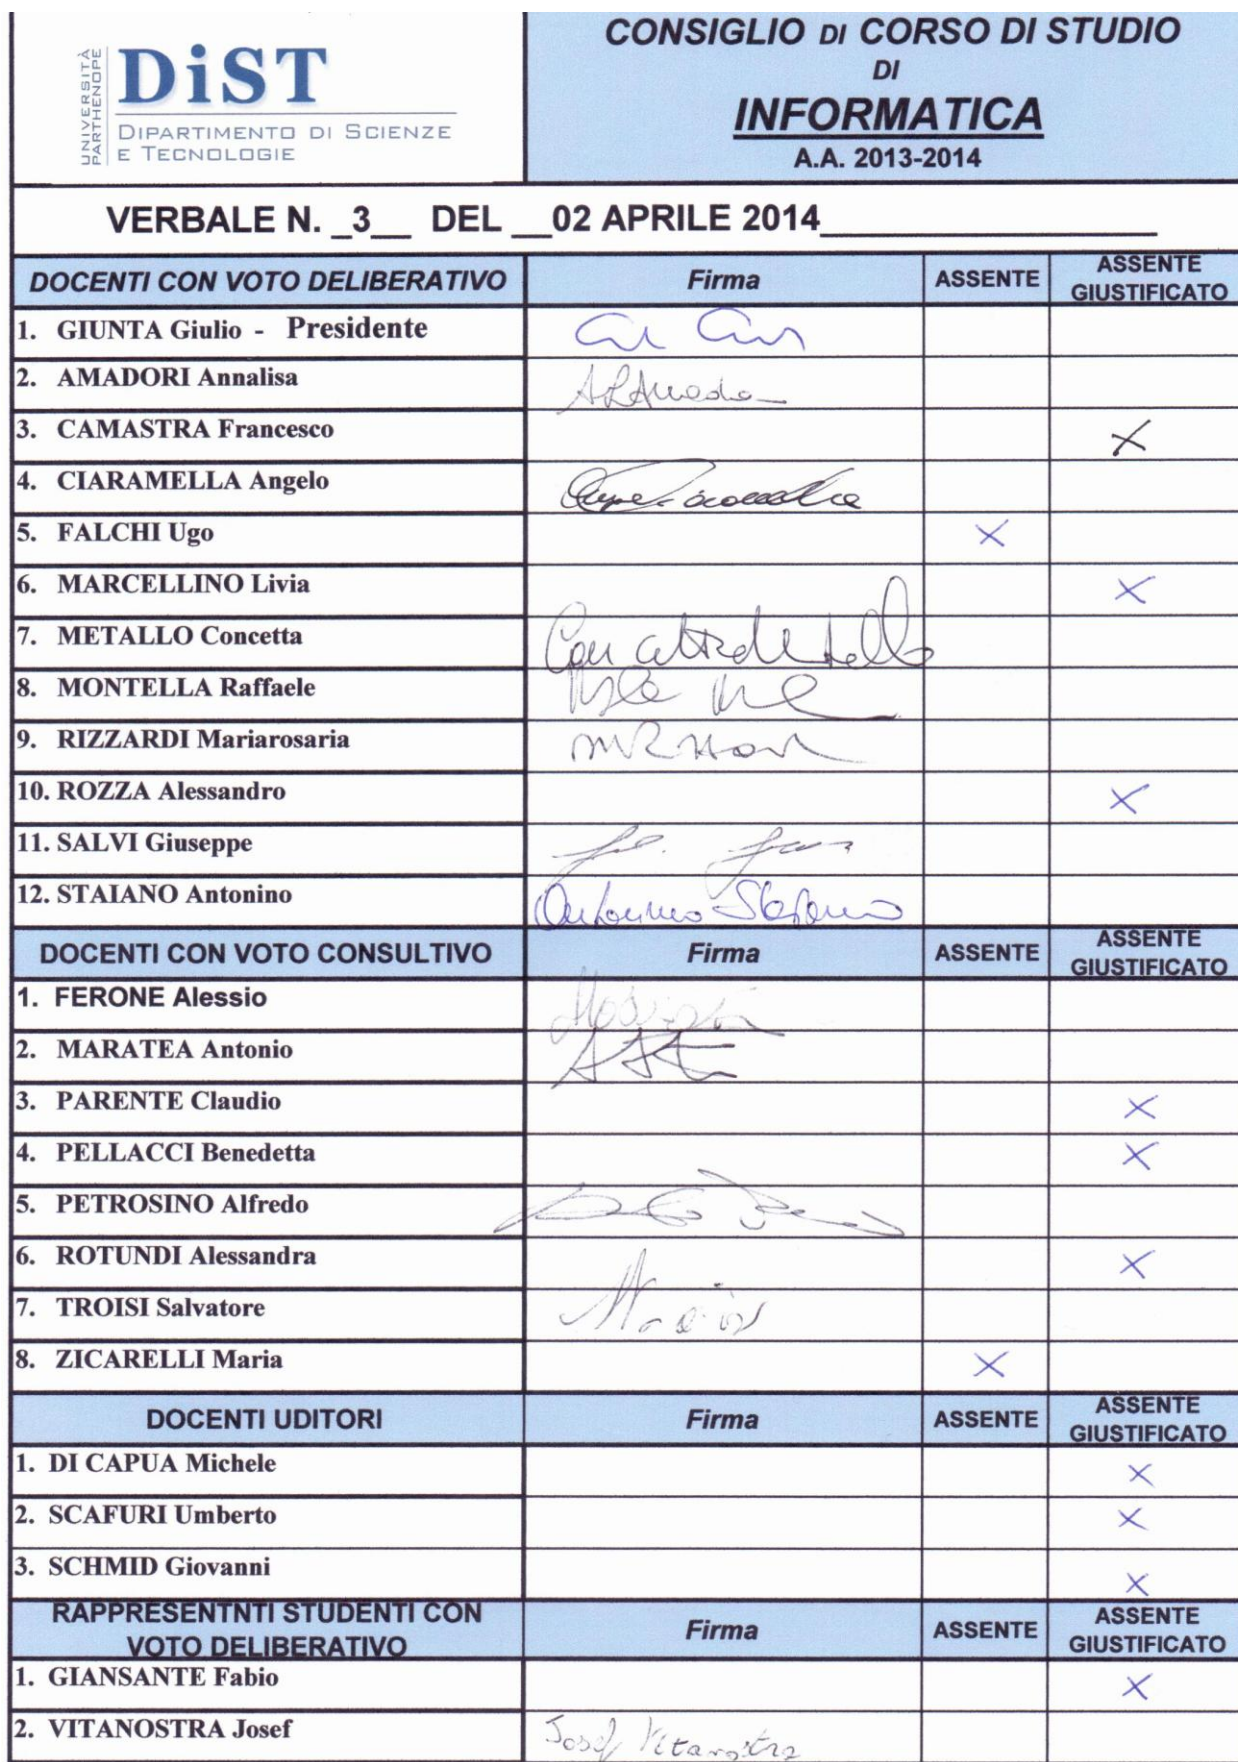 UNIVERSITÀ
PARTHENOPE
DiST
DIPARTIMENTO DI SCIENZE
E TECNOLOGIE
CONSIGLIO DI CORSO DI STUDIO
DI
INFORMATICA
A.A. 2013-2014
VERBALE N. _3__ DEL __02 APRILE 2014__________________
DOCENTI CON VOTO DELIBERATIVO Firma ASSENTE ASSENTE GIUSTIFICATO
1. GIUNTA Giulio - Presidente
2. AMADORI Annalisa
3. CAMASTRA Francesco X
4. CIARAMELLA Angelo
5. FALCHI Ugo X
6. MARCELLINO Livia X
7. METALLO Concetta
8. MONTELLA Raffaele
9. RIZZARDI Mariarosaria
10. ROZZA Alessandro X
11. SALVI Giuseppe
12. STAIANO Antonino Antonino Staiano
DOCENTI CON VOTO CONSULTIVO Firma ASSENTE ASSENTE GIUSTIFICATO
1. FERONE Alessio
2. MARATEA Antonio
3. PARENTE Claudio X
4. PELLACCI Benedetta X
5. PETROSINO Alfredo
6. ROTUNDI Alessandra X
7. TROISI Salvatore
8. ZICARELLI Maria X
DOCENTI UDITORI Firma ASSENTE ASSENTE GIUSTIFICATO
1. DI CAPUA Michele X
2. SCAFURI Umberto X
3. SCHMID Giovanni X
RAPPRESENTNTI STUDENTI CON VOTO DELIBERATIVO Firma ASSENTE ASSENTE GIUSTIFICATO
1. GIANSANTE Fabio X
2. VITANOSTRA Josef Josef Vitanostra